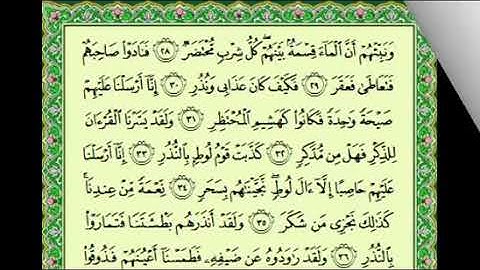 وَنَبِّئْهُمْ أَنَّ ٱلْمَآءَ قِسْمَةٌۢ بَيْنَهُمْ ۖ كُلُّ شِرْبٍ مُّحْتَضَرٌ ﴿٢٨﴾ فَنَادَوْا۟ صَاحِبَهُمْ
فَتَعَاطَىٰ فَعَقَرَ ﴿٢٩﴾ فَكَيْفَ كَانَ عَذَابِى وَنُذُرِ ﴿٣٠﴾ إِنَّآ أَرْسَلْنَا عَلَيْهِمْ
صَيْحَةً وَٰحِدَةً فَكَانُوا۟ كَهَشِيمِ ٱلْمُحْتَظِرِ ﴿٣١﴾ وَلَقَدْ يَسَّرْنَا ٱلْقُرْءَانَ
لِلذِّكْرِ فَهَلْ مِن مُّدَّكِرٍ ﴿٣٢﴾ كَذَّبَتْ قَوْمُ لُوطٍۭ بِٱلنُّذُرِ ﴿٣٣﴾ إِنَّآ أَرْسَلْنَا
عَلَيْهِمْ حَاصِبًا إِلَّآ ءَالَ لُوطٍ ۖ نَّجَّيْنَٰهُم بِسَحَرٍ ﴿٣٤﴾ نِّعْمَةً مِّنْ عِندِنَا ۚ
كَذَٰلِكَ نَجْزِى مَن شَكَرَ ﴿٣٥﴾ وَلَقَدْ أَنذَرَهُم بَطْشَتَنَا فَتَمَارَوْا۟
بِٱلنُّذُرِ ﴿٣٦﴾ وَلَقَدْ رَٰوَدُوهُ عَن ضَيْفِهِۦ فَطَمَسْنَآ أَعْيُنَهُمْ فَذُوقُوا۟